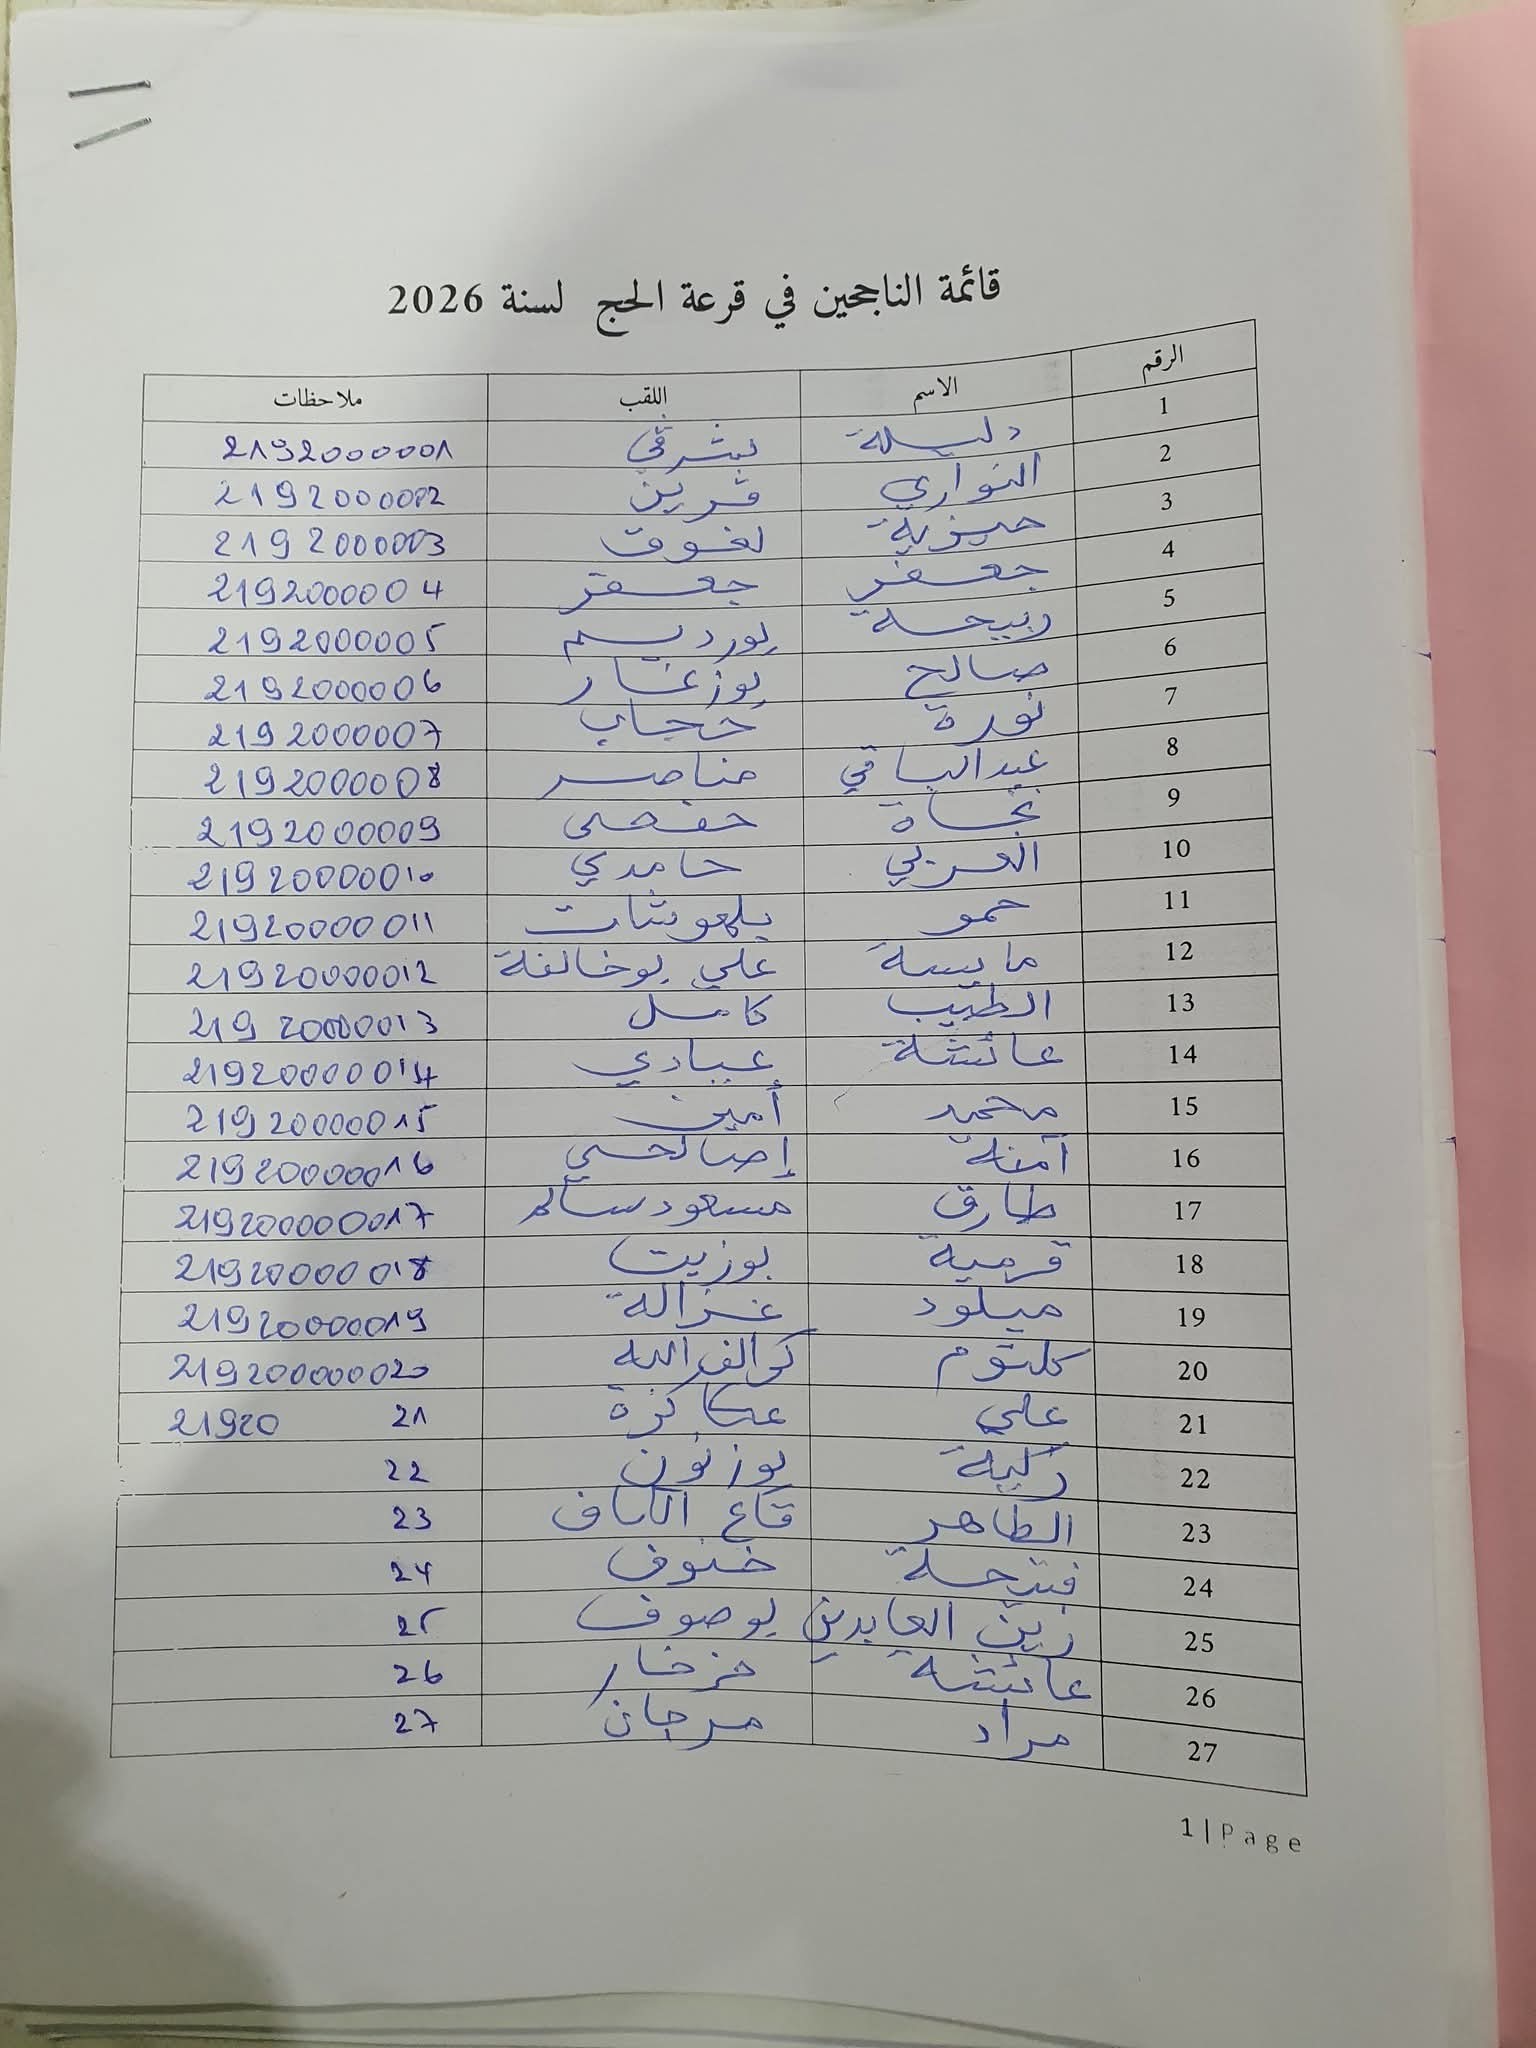 قائمة الناجحين في قرعة الحج لسنة 2026
الرقم الاسم اللقب ملاحظات
1 دليلة بشرقي 2192000001
2 النواري قرين 2192000002
3 حيزية لغوق 2192000003
4 جعفر جعفر 219200004
5 ربيحة بورديم 2192000005
6 صالح بوزغار 2192000006
7 نورة حجاب 2192000007
8 عبد الباقي مناصر 2192000008
9 نجاة حفصي 2192000009
10 العربي حامدي 21920000010
11 حمو بلهوشات 21920000011
12 مايسة علي بوخالفة 21920000012
13 الطيب كامل 21920000013
14 عائشة عبادي 21920000014
15 محمد أمين 21920000015
16 آمنة إصالحي 21920000016
17 طارق مسعود سالم 219200000017
18 قرمية بوزيت 21920000018
19 ميلود غزالة 21920000019
20 كلثوم 219200000020
21 علي عكاكزة 21920 21
22 زكية بوزنون 22
23 الطاهر قاع الكاف 23
24 فتيحة خنوف 24
25 زين العابدين بوصوف 25
26 عائشة خرخار 26
27 مراد مرجان 27
1 | Page